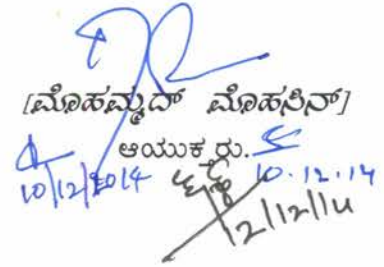 [ಮೊಹಮ್ಮದ್ ಮೊಹಸಿನ್]
ಆಯುಕ್ತರು.
10/12/2014 10.12.14
12/12/14